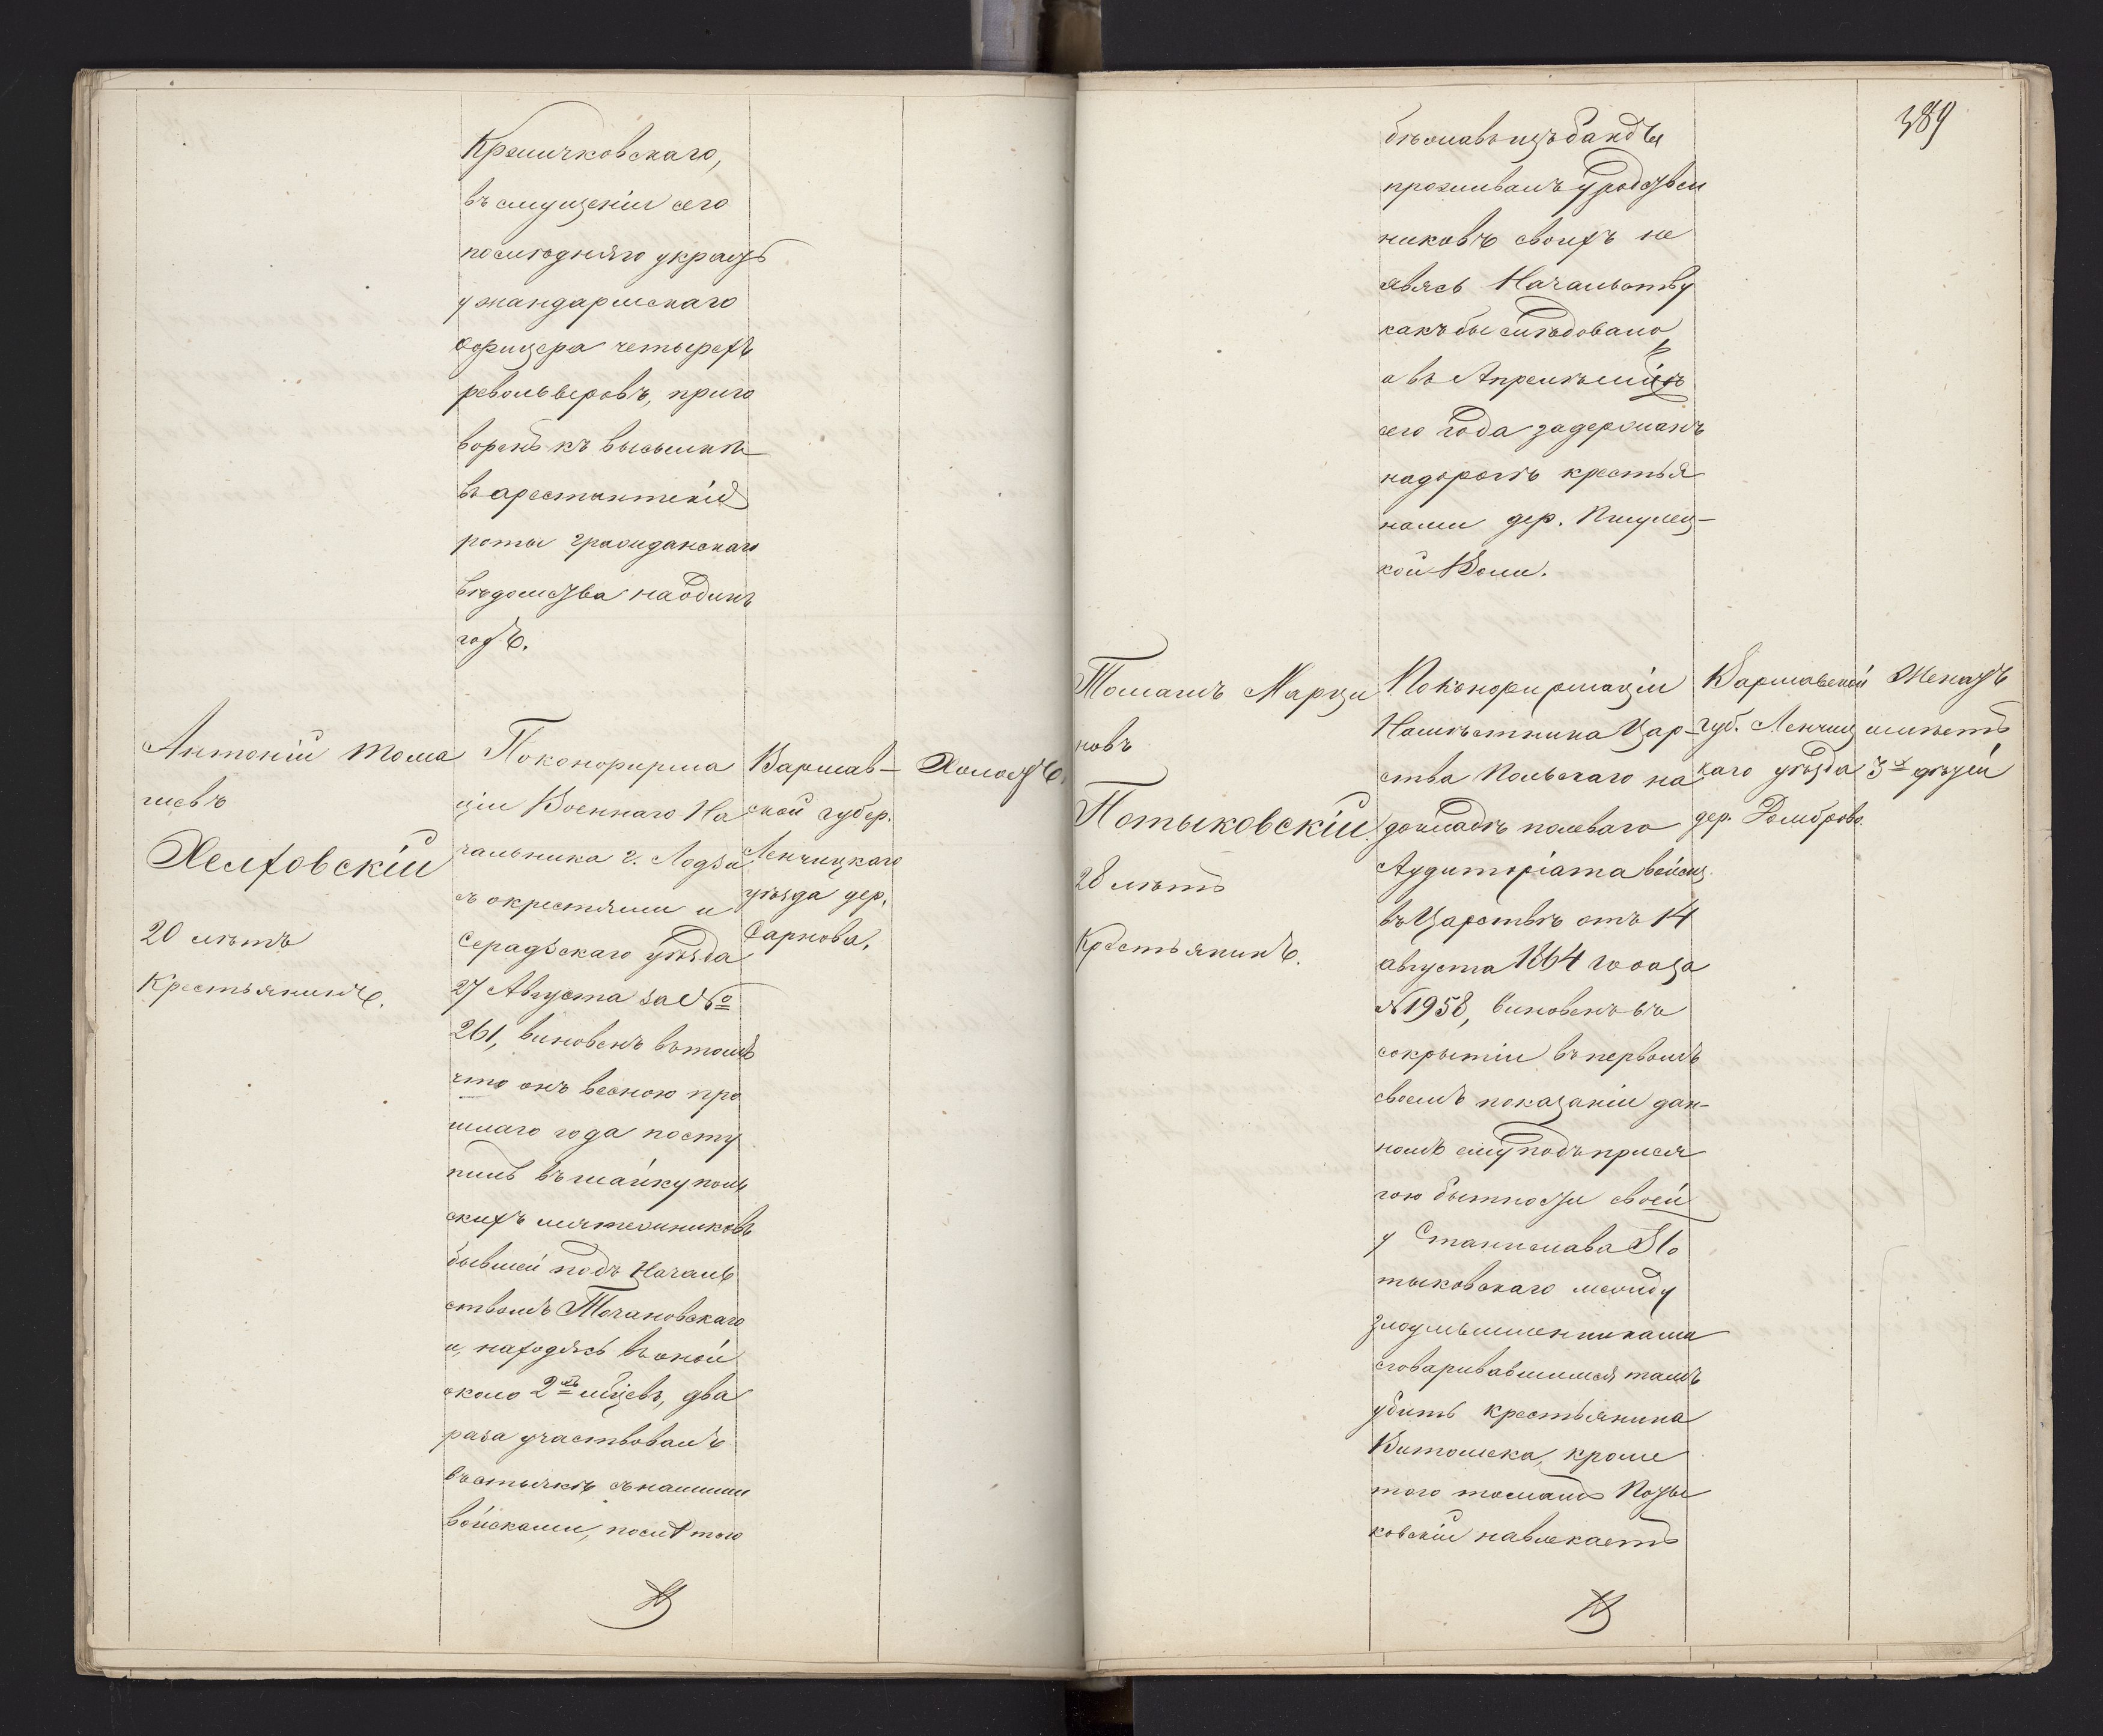 Кржичковскаго,
въ смущеніи сего
последняго укралъ
у жандармскаго
офицера четырехъ
револьверовъ, приго
воренъ къ высылкѣ
въ арестантскія
роты гражданскаго
вѣдомства на одинъ
годъ.
Антоній Тома
шевъ
Хелховскій
20 лѣтъ
Крестьянинъ.
По конфирма
ціи Военнаго На
чальника г. Лодзи
съ окрестями и
Серадзскаго уѣзда
27 Августа за №
261, виновенъ въ томъ
что онъ весною про
шлаго года посту
пилъ въ шайку поль
скихъ мятежниковъ
бывшей подъ Началь
ствомъ Точановскаго
и, находясь въ оной
около 2хъ мѣсцевъ, два
раза участвовалъ
въ стычкѣ съ нашими
войсками, послѣ того
Варшав-
ской губер.
Ленчицкаго
уѣзда дер.
Сарнова.
Холостъ.
389
бѣжавъ изъ банды
проживалъ у родствен
никовъ своихъ не
явясь Начальству
какъ бы слѣдовало
а въ Апрелѣ м-цѣ
сего года задержанъ
на дорогѣ крестья
нами дер.
кой Воли.
Томашъ Марци
новъ
Потыковскій
28 лѣтъ
Крестьянинъ.
По конфирмаціи
Намѣстника Цар-
ства Польскаго на
докладѣ полеваго
Аудиторіата войскъ
въ Царствѣ отъ 14
августа 1864 года за
№ 1958, виновенъ въ
сокрытіи въ первомъ
своемъ показаніи дан-
номъ ему подъ прися
гою бытности своей
у Станислава По
тыковскаго между
злоумышленниками
сговаривавшимися тамъ
убить крестьянина
Витошека, кроме
того томашъ Поты
ковскій навлекаетъ
Варшавской
губ. Ленчиц
каго уѣзда
дер. Домброво.
Женатъ
имѣетъ
3х дѣтей